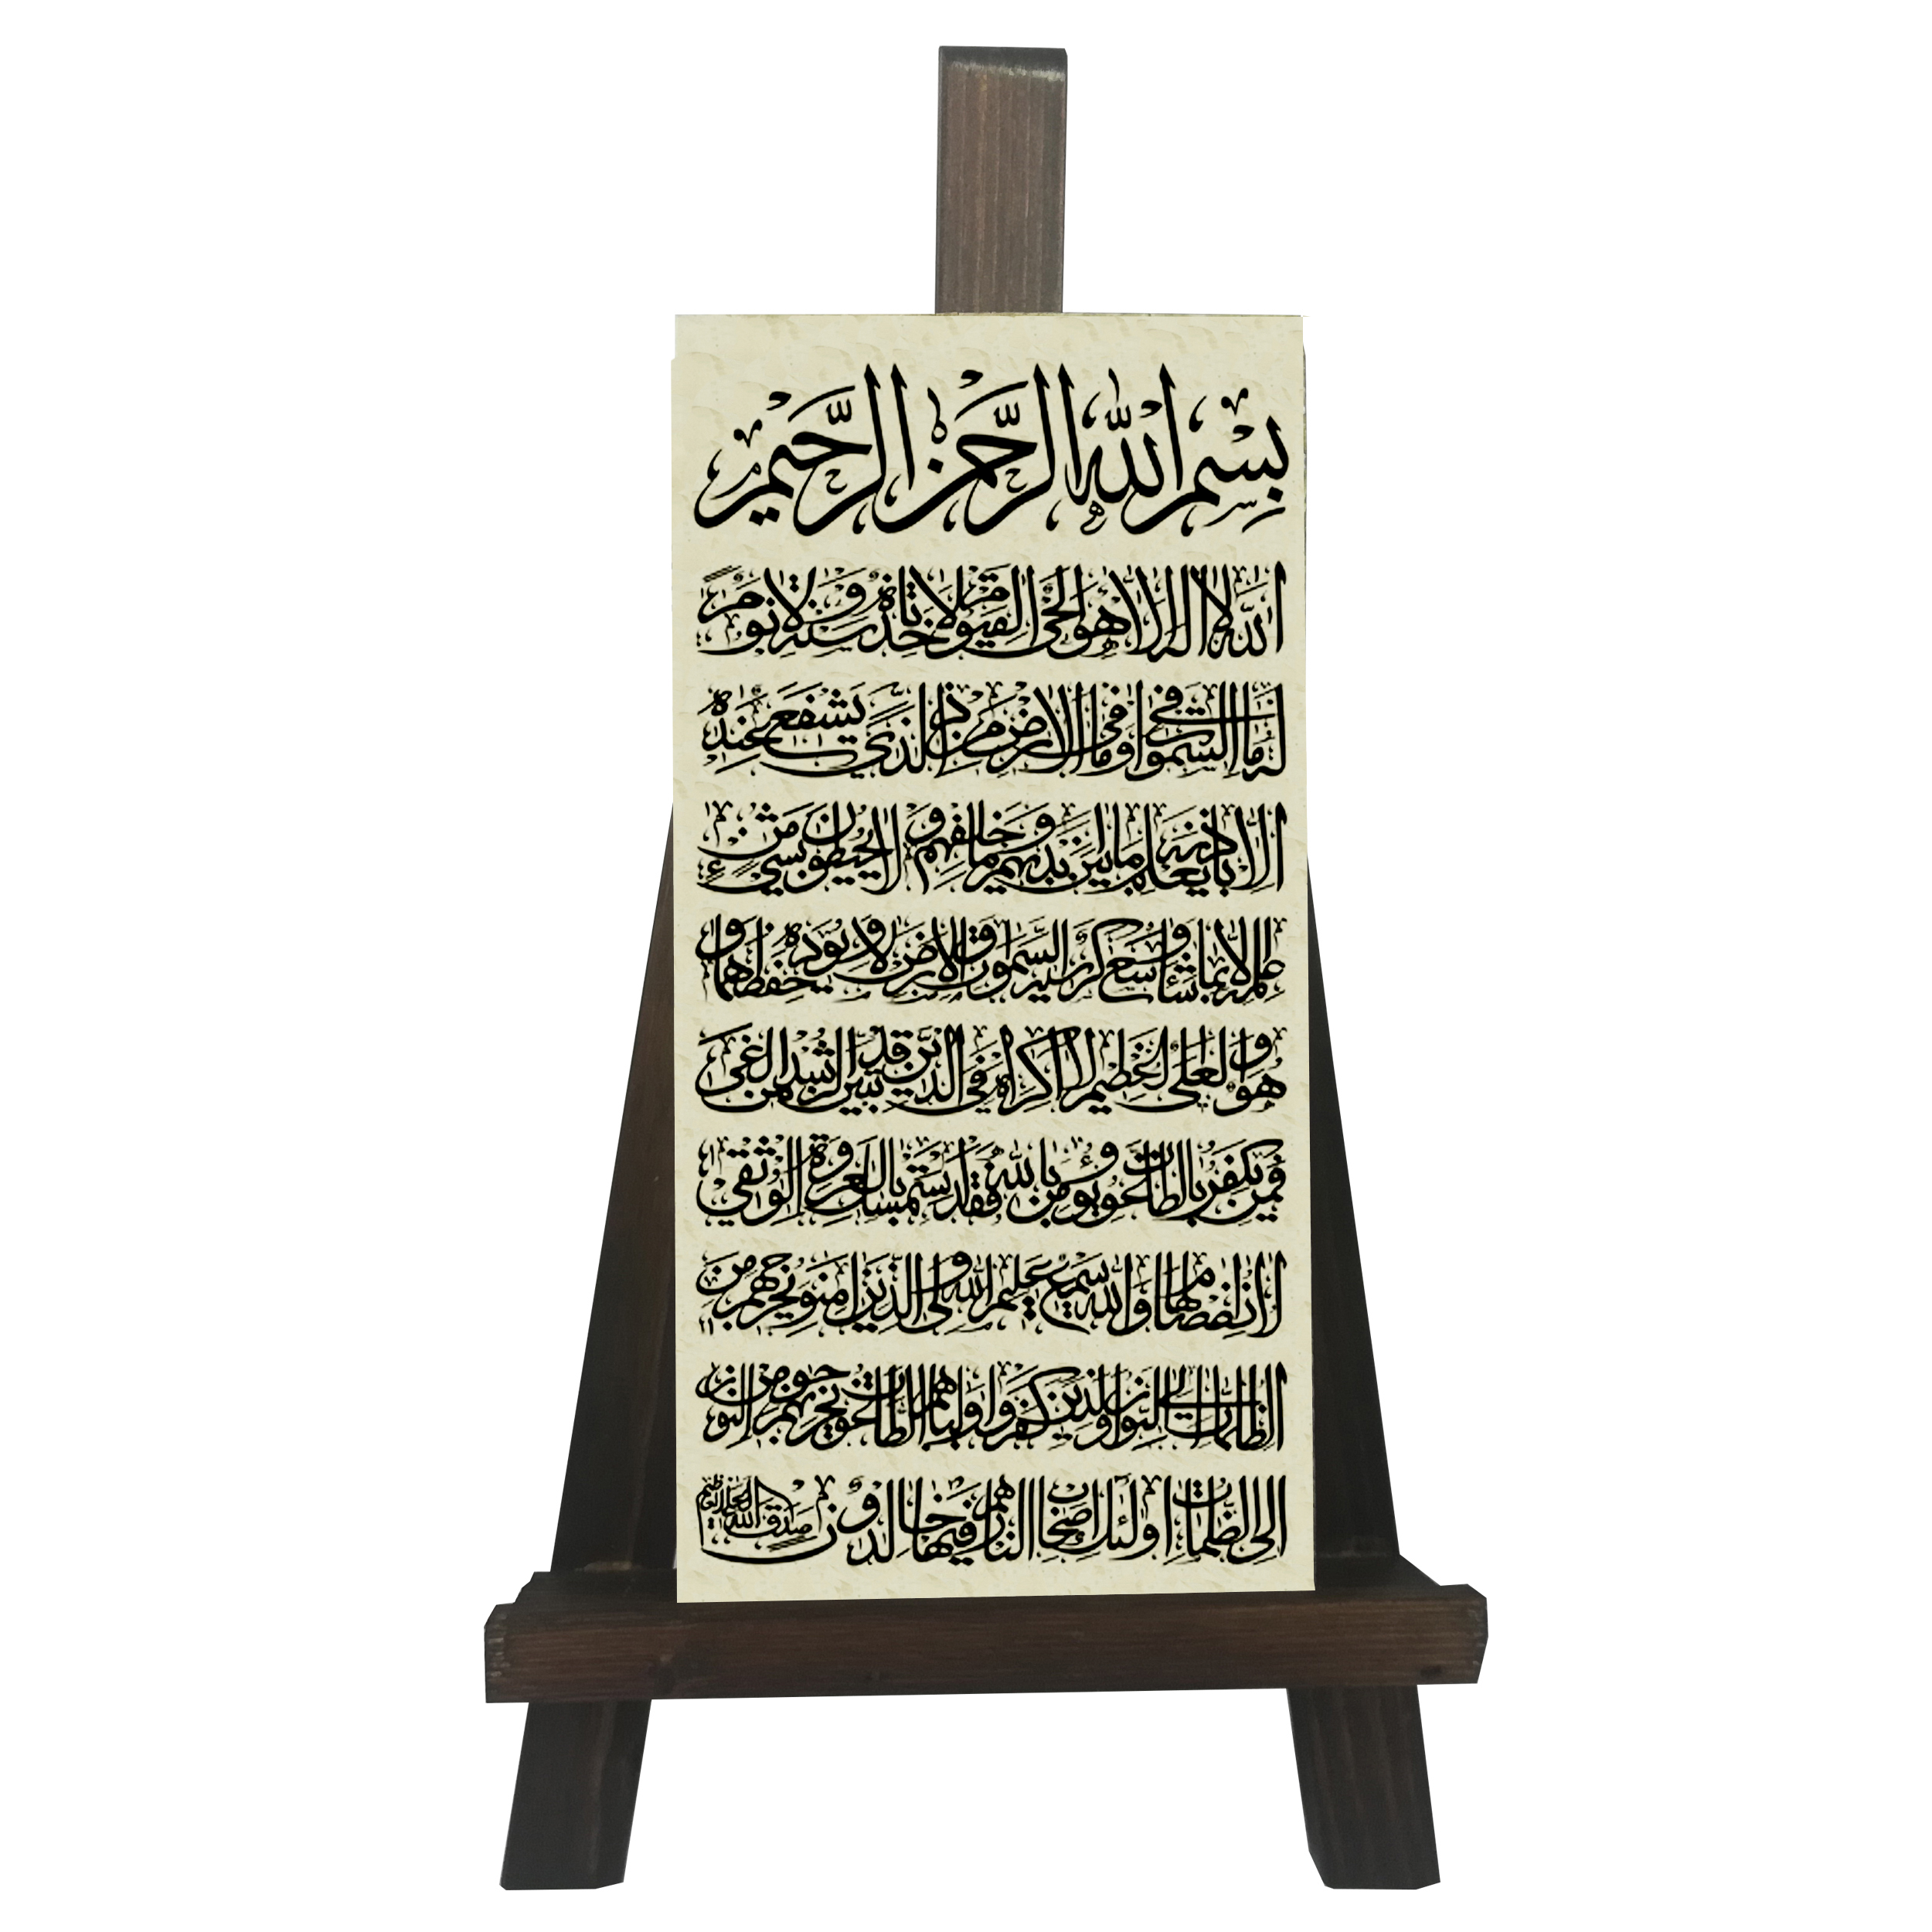 بِسْمِ اللهِ الرَّحْمنِ الرَّحيمِ
الله لا اله الا هو الحي القيوم لا تاخذه سنة ولا نوم
له ما في السموات وما في الارض من ذا الذي يشفع عنده
الا باذنه يعلم ما بين يديهم وما خلفهم ولا يحيطون بشيء من
علمه الا بما شاء وسع كرسيه السموات والارض ولا يوده حفظهما و
هو العلي العظيم لا اكراه في الدين قد تبين الرشد من الغي
فمن يكفر بالطاغوت ويومن بالله فقد استمسك بالعروة الوثقى
لا انفصام لها والله سميع عليم الله ولي الذين امنوا يخرجهم من
الظلمات الى النور والذين كفروا اولياهم الطاغوت يخرجونهم من النور
الى الظلمات اولئك اصحاب النار هم فيها خالدون صدق الله العلي العظيم